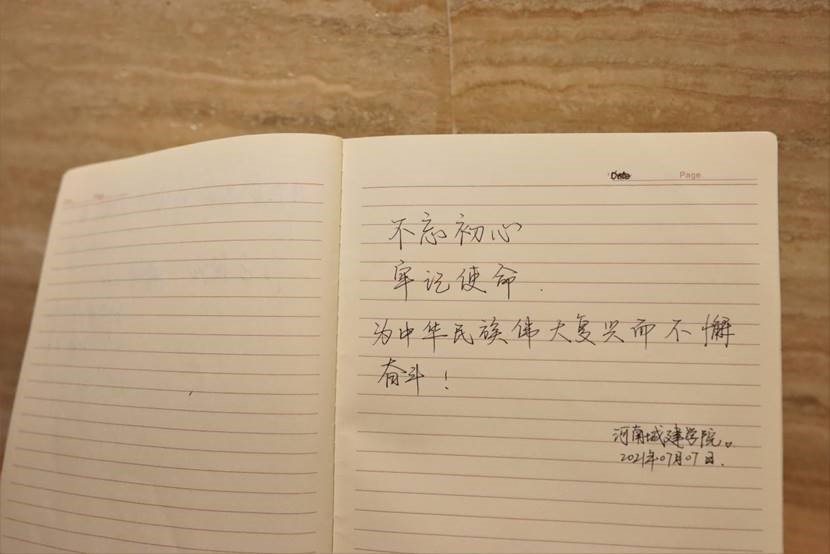 Page
不忘初心
牢记使命.
为中华民族伟大复兴而不懈
奋斗!
河南城建学院。
2021年07月07日.